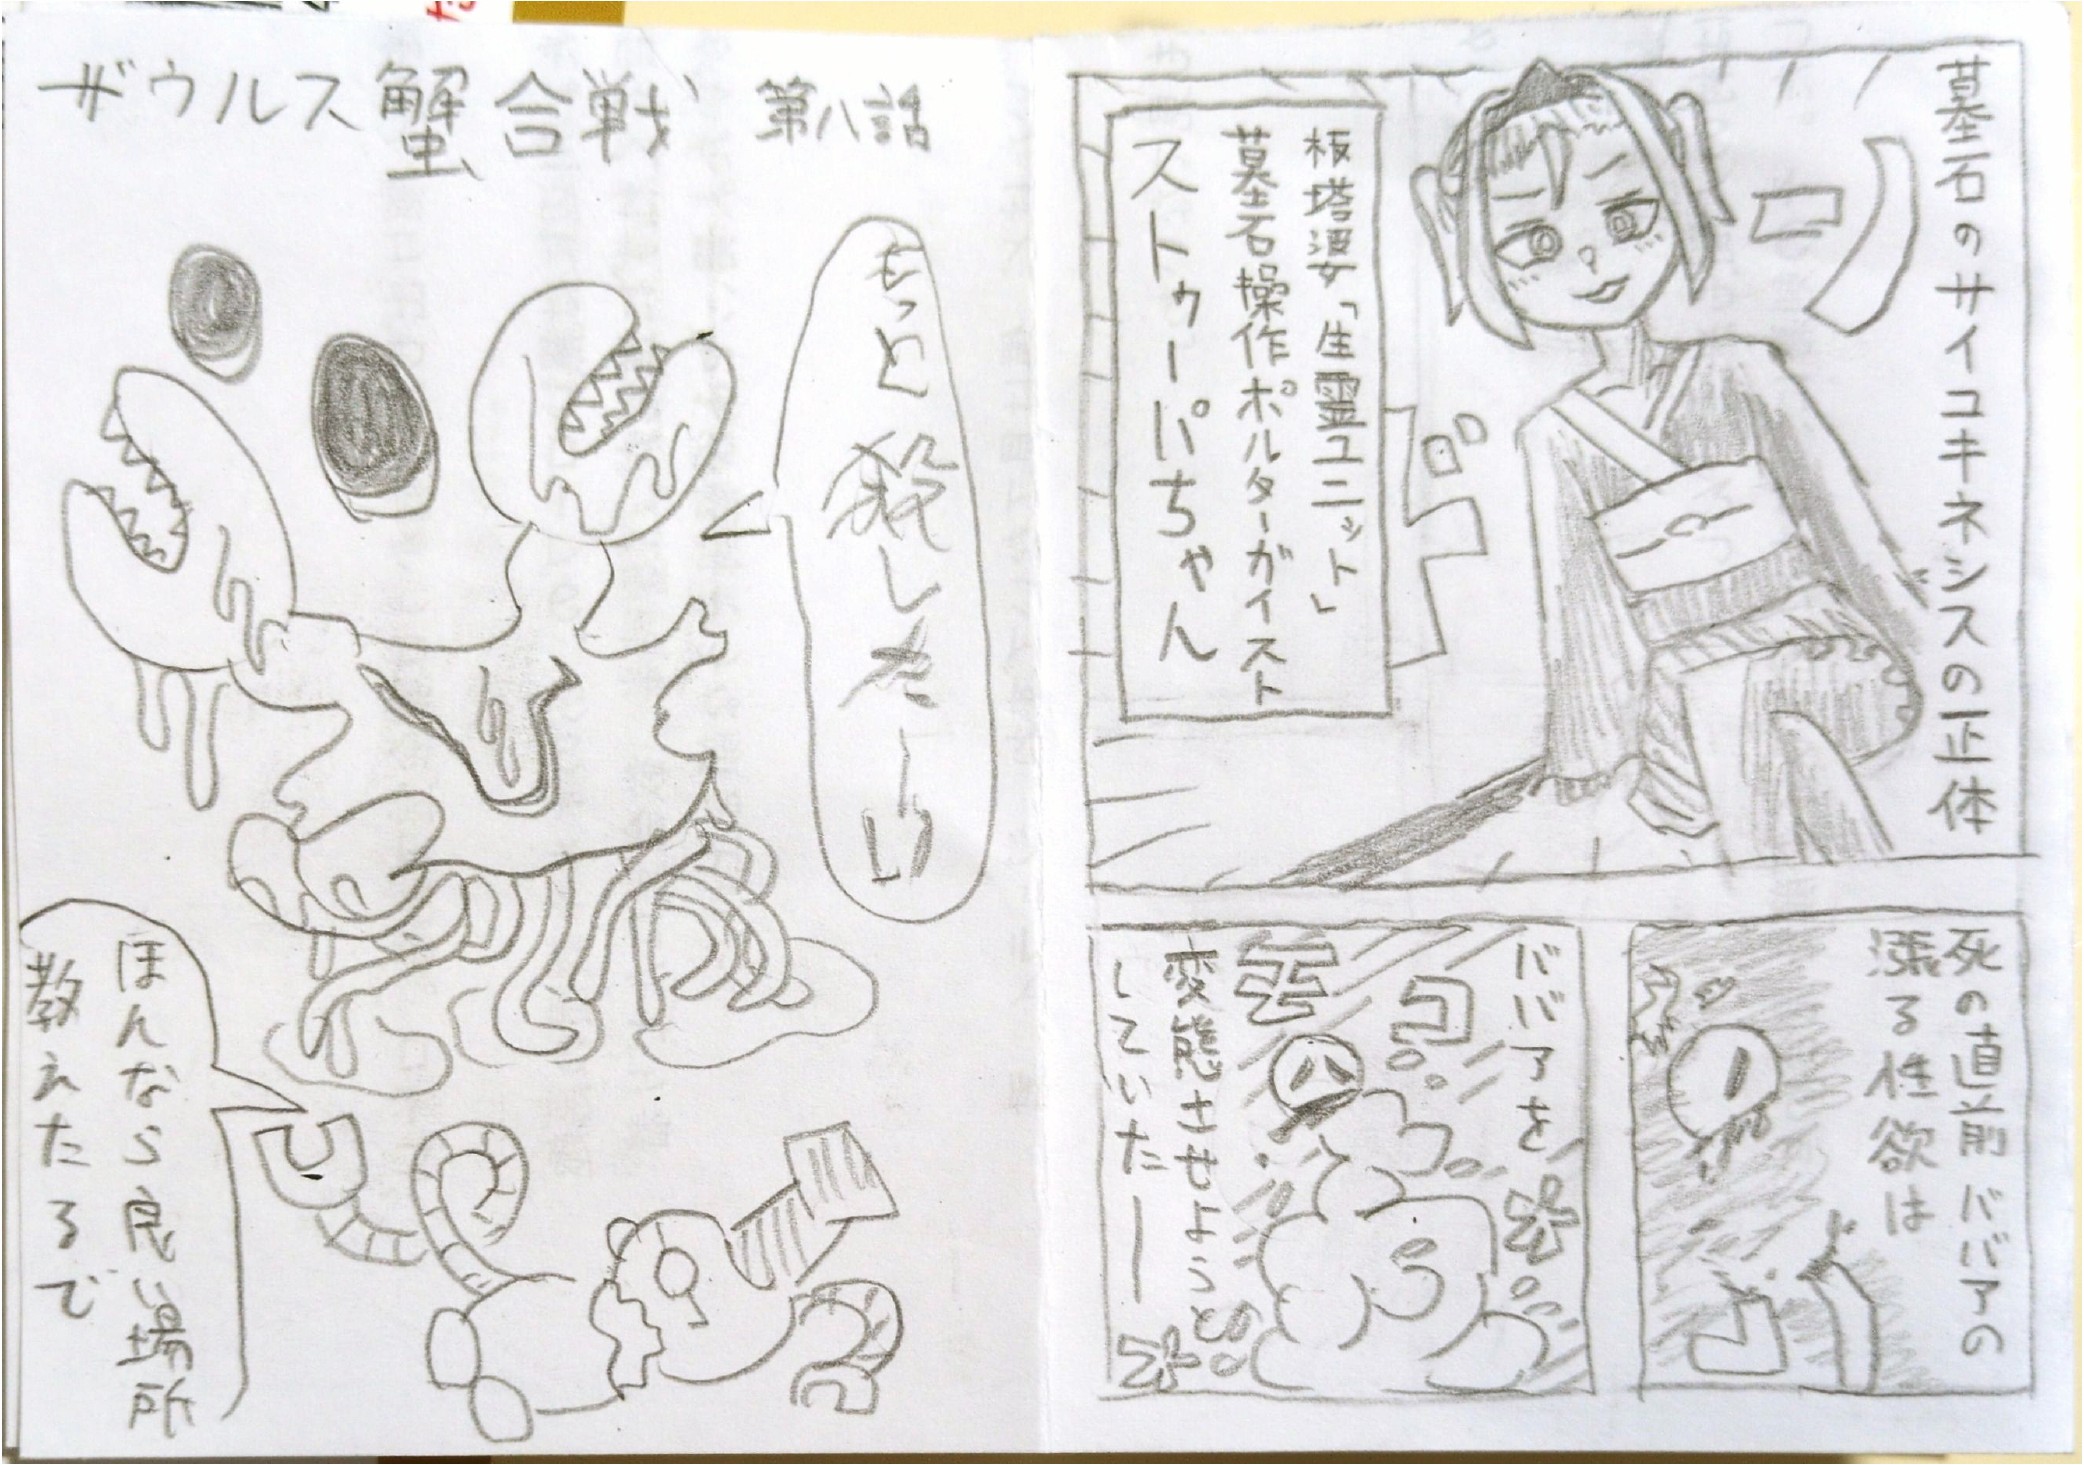 墓石のサイコキネシスの正体
板塔婆「生霊ユニット」
墓石操作ポルターガイスト
ストゥーパちゃん
ゴゴ
死の直前ババアの
漲る性欲は
ババアを
モコ
モコ
変態させようと
していたー
ザウルス蟹合戦 第八話
もっと殺したーい
ほんなら良い場所
教えたるで